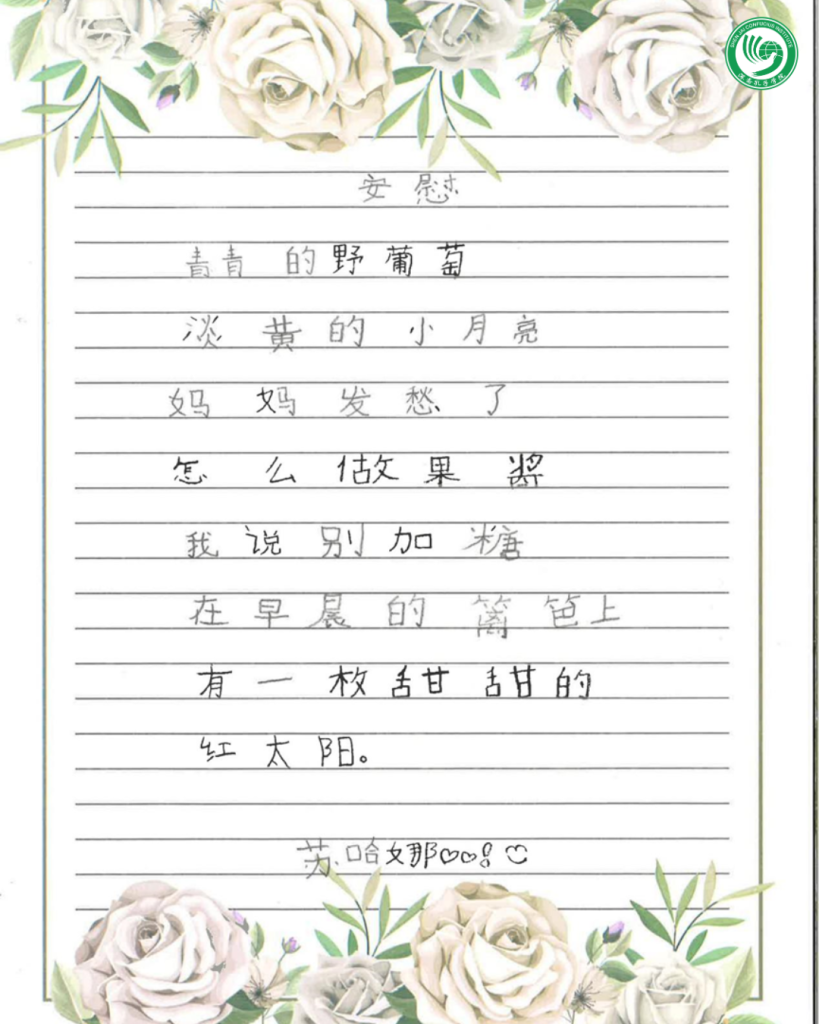 安慰
青青的野葡萄
淡黄的小月亮
妈妈发愁了
怎么做果酱
我说别加糖
在早晨的篱笆上
有一枚甜甜的
红太阳。
苏哈娜♡♡! ☺